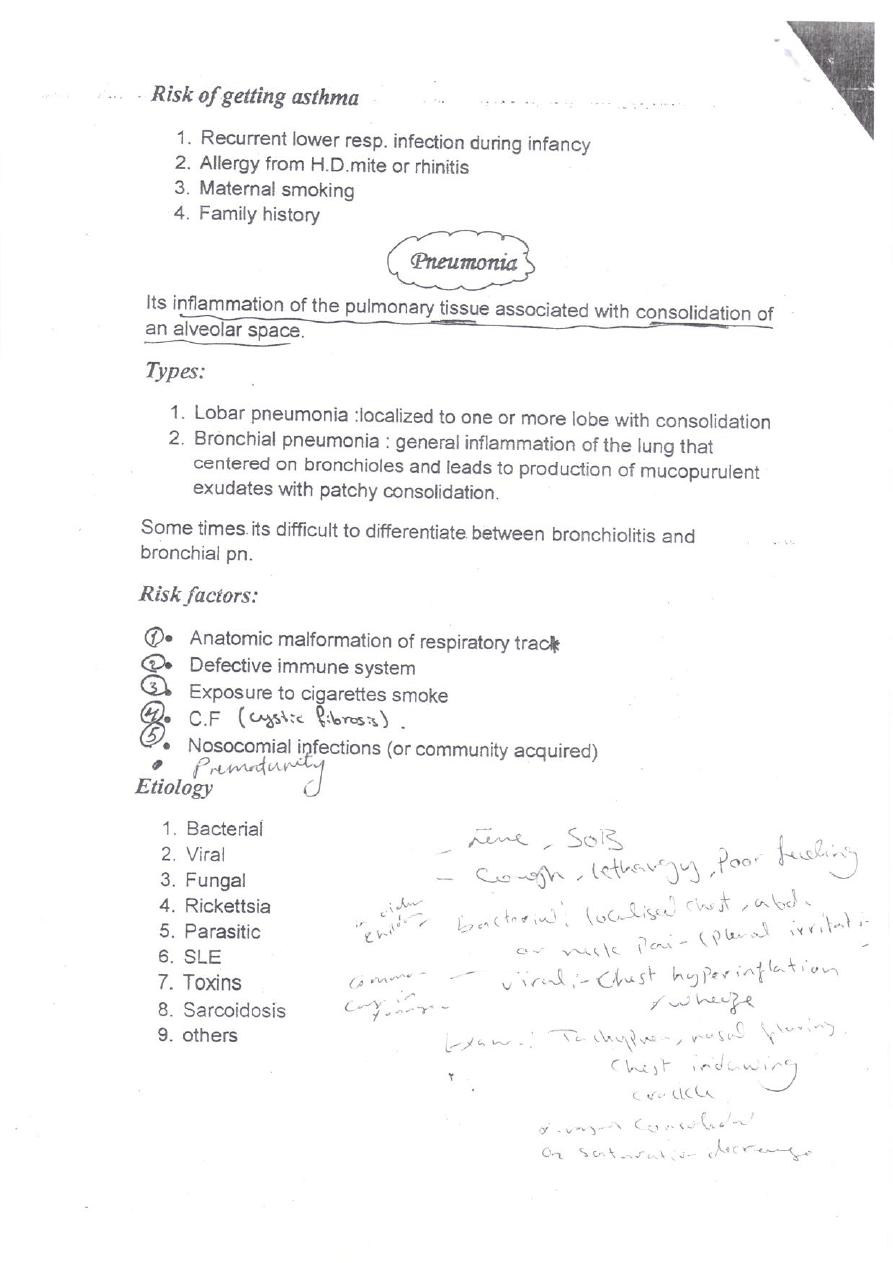 Risk of getting asthma
1. Recurrent lower resp. infection during infancy
2. Allergy from H.D.mite or rhinitis
3. Maternal smoking
4. Family history
Pneumonia
Its inflammation of the pulmonary tissue associated with consolidation of
an alveolar space.
Types:
1. Lobar pneumonia :localized to one or more lobe with consolidation
2. Bronchial pneumonia : general inflammation of the lung that
centered on bronchioles and leads to production of mucopurulent
exudates with patchy consolidation.
Some times its difficult to differentiate between bronchiolitis and
bronchial pn.
Risk factors:
① • Anatomic malformation of respiratory track
② • Defective immune system
③ • Exposure to cigarettes smoke
④ • C.F (cystic fibrosis).
⑤ • Nosocomial infections (or community acquired)
• Prematurity
Etiology
1. Bacterial
2. Viral
3. Fungal
4. Rickettsia
5. Parasitic
6. SLE
7. Toxins
8. Sarcoidosis
9. others
- , SOB
- Cough, lethargy, Poor feeding
bacterial: localised chest, abd.
or neck Pain (pleural irritati
- viral:- Chest hyperinflation
/ wheeze
Exam: Tachypnea, nasal flaring
Chest indrawing
crackle
x-ray consolidat
O2 saturation